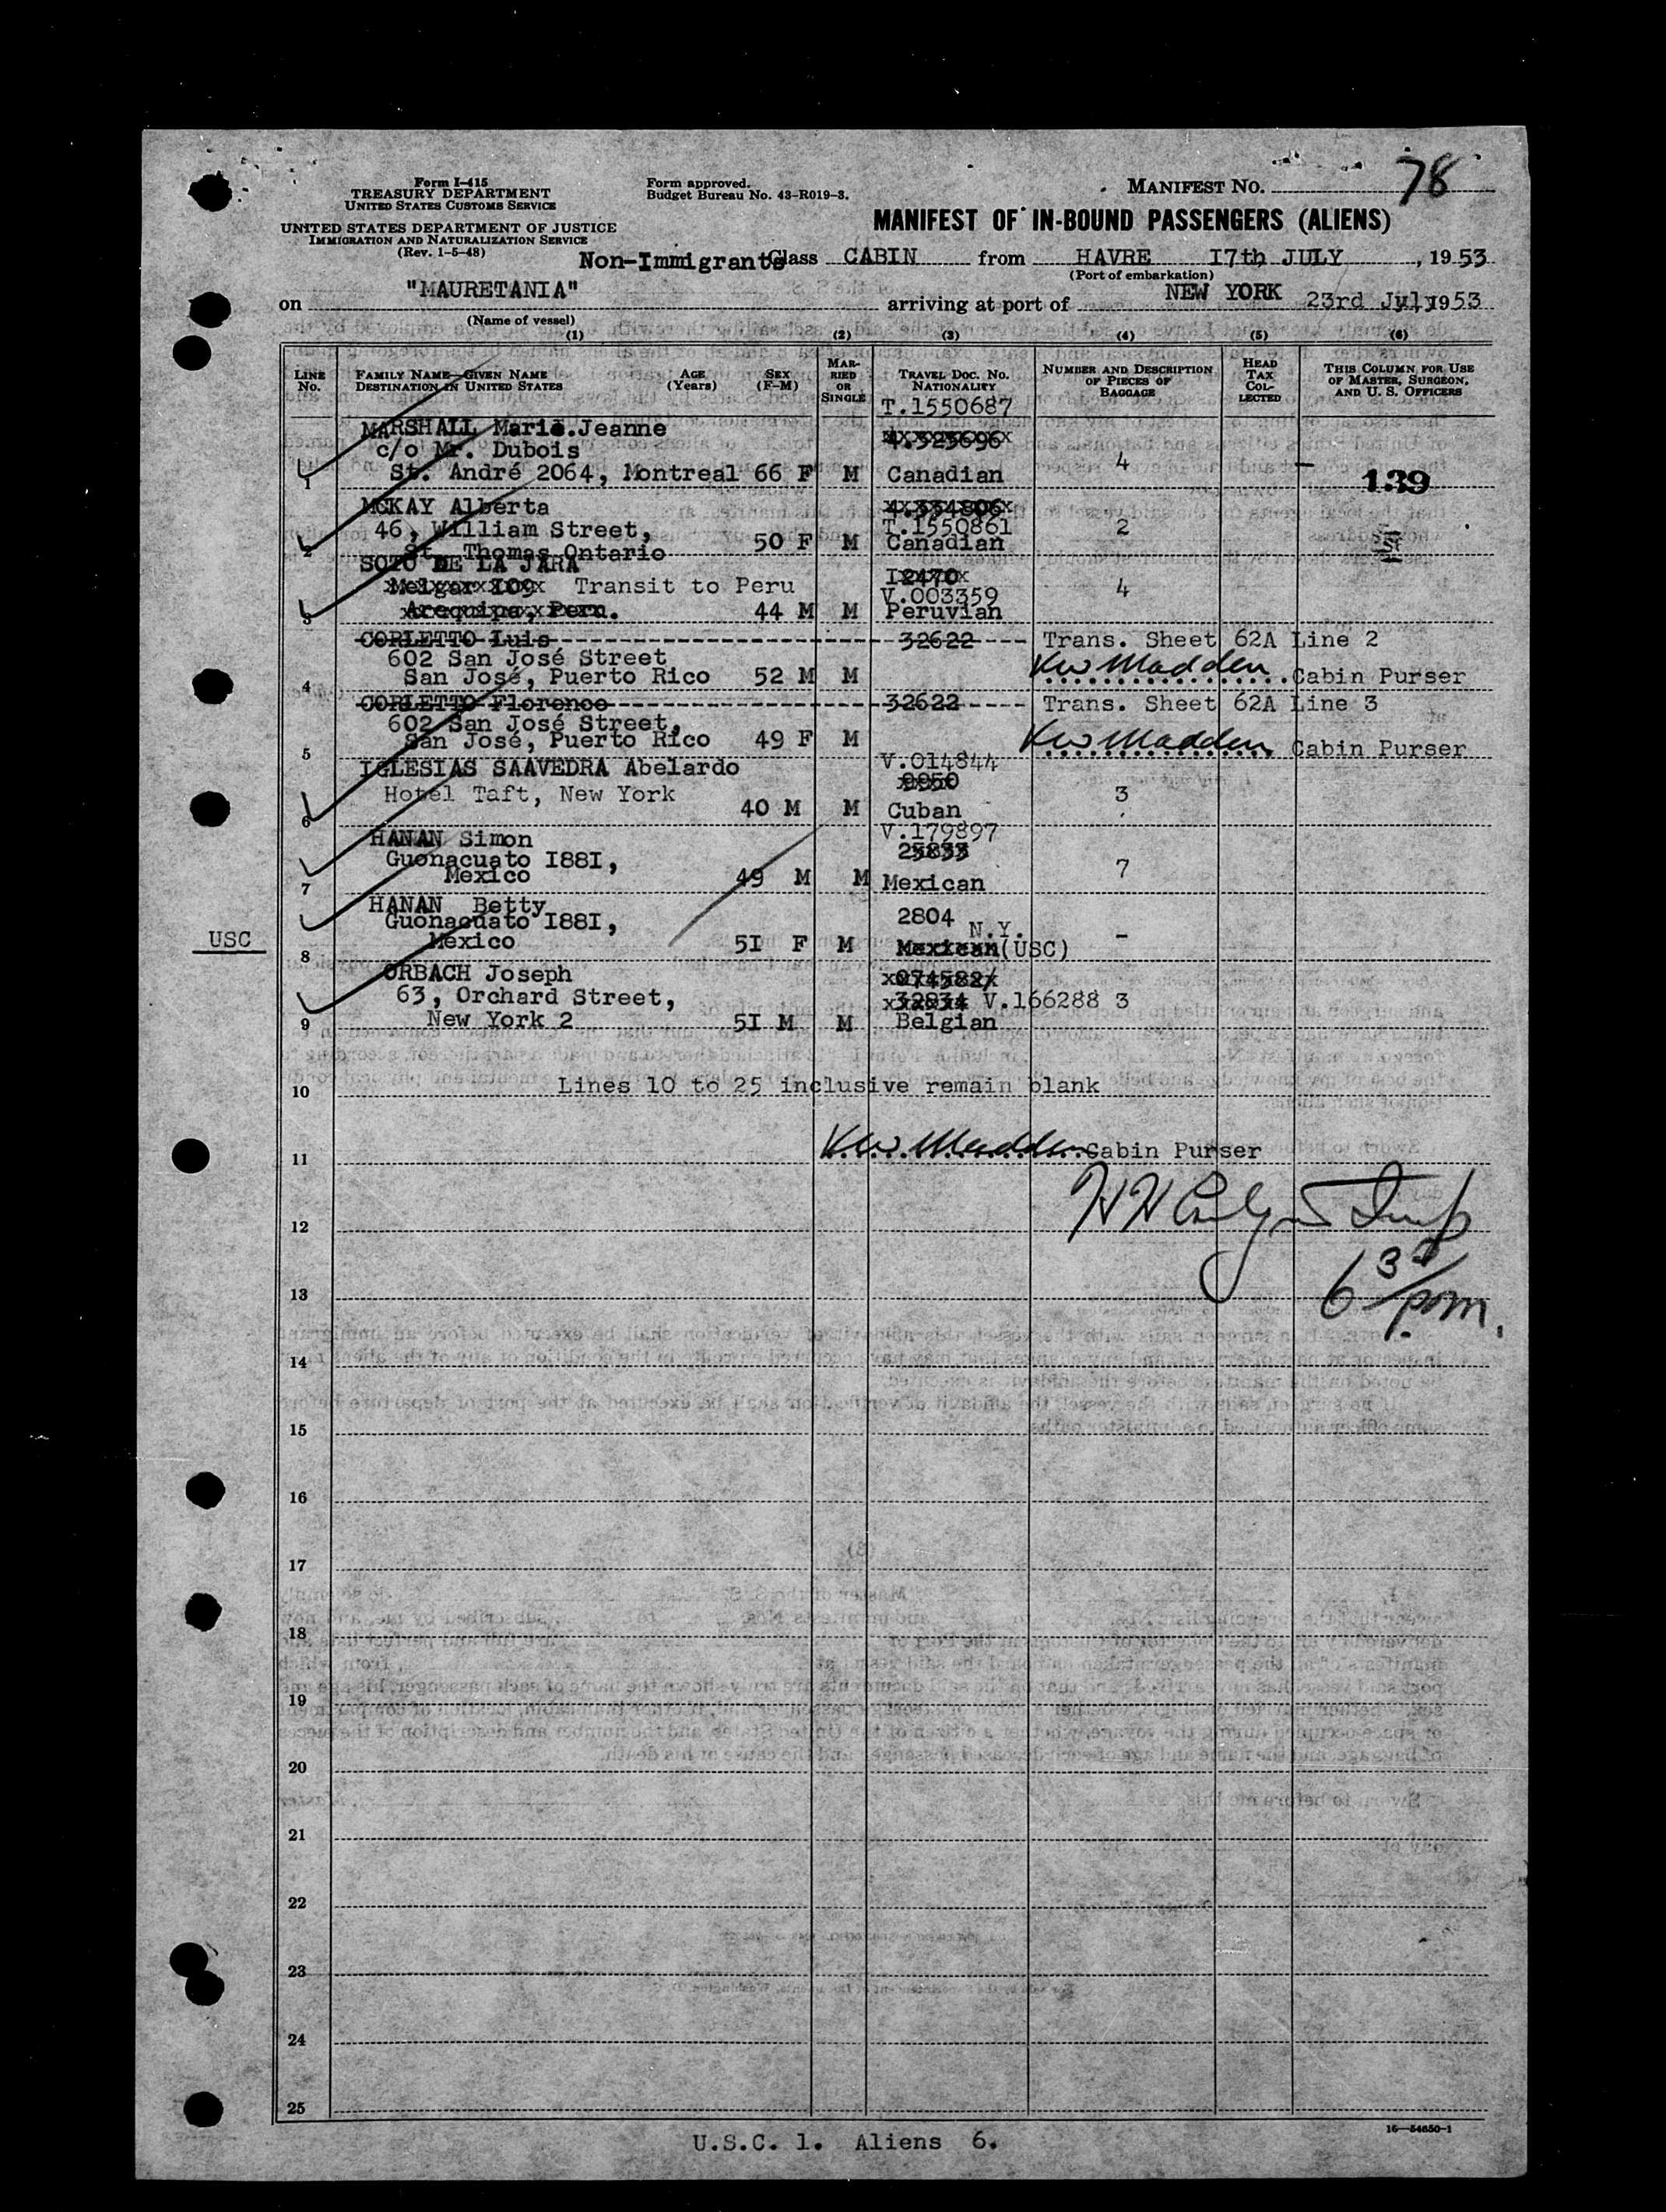 Form I-415
TREASURY DEPARTMENT
UNITED STATES CUSTOMS SERVICE
UNITED STATES DEPARTMENT OF JUSTICE
IMMIGRATION AND NATURALIZATION SERVICE
(Rev. 1-5-48)
Form approved.
Budget Bureau No. 43-R019-3.
MANIFEST NO. 78
MANIFEST OF IN-BOUND PASSENGERS (ALIENS)
Non-Immigrants Class CABIN from HAVRE 17th JULY, 1953
(Port of embarkation)
on "MAURETANIA" arriving at port of NEW YORK 23rd July, 1953
(Name of vessel)
(1) (2) (3) (4) (5) (6)
LINE No. FAMILY NAME—GIVEN NAME DESTINATION IN UNITED STATES AGE (Years) SEX (F-M) MARRIED OR SINGLE TRAVEL DOC. NO. NATIONALITY NUMBER AND DESCRIPTION OF PIECES OF BAGGAGE HEAD TAX COLLECTED THIS COLUMN FOR USE OF MASTER, SURGEON, AND U. S. OFFICERS
T.1550687
MARSHALL Marie.Jeanne 4.323696
c/o Mr. Dubois
1 St. André 2064, Montreal 66 F M Canadian 4 — 139
MCKAY Alberta 4.334806
46, William Street, T.1550861
2 St. Thomas Ontario 50 F M Canadian 2
SOTO DE LA JARA
Melgar I09 Transit to Peru I2470
V.003359
3 Arequipa, Peru. 44 M M Peruvian 4
CORLETTO Luis 32622 Trans. Sheet 62A Line 2
602 San José Street
4 San José, Puerto Rico 52 M M KW Madden Cabin Purser
CORLETTO Florence 32622 Trans. Sheet 62A Line 3
602 San José Street,
5 San José, Puerto Rico 49 F M KW Madden Cabin Purser
IGLESIAS SAAVEDRA Abelardo V.014844
9950
Hotel Taft, New York
6 40 M M Cuban 3
HANAN Simon V.179897
Guonacuato I88I, 25833
7 Mexico 49 M M Mexican 7
HANAN Betty 2804
Guonacuato I88I, N.Y.
USC 8 Mexico 5I F M Mexican (USC) -
ORBACH Joseph 074582/
63, Orchard Street, 32834 V.166288 3
9 New York 2 5I M M Belgian
10 Lines 10 to 25 inclusive remain blank
11 K.W. Madden Cabin Purser
12
6 30/p.m.
13
14
15
16
17
18
19
20
21
22
23
24
25
16—54650-1
U.S.C. 1. Aliens 6.